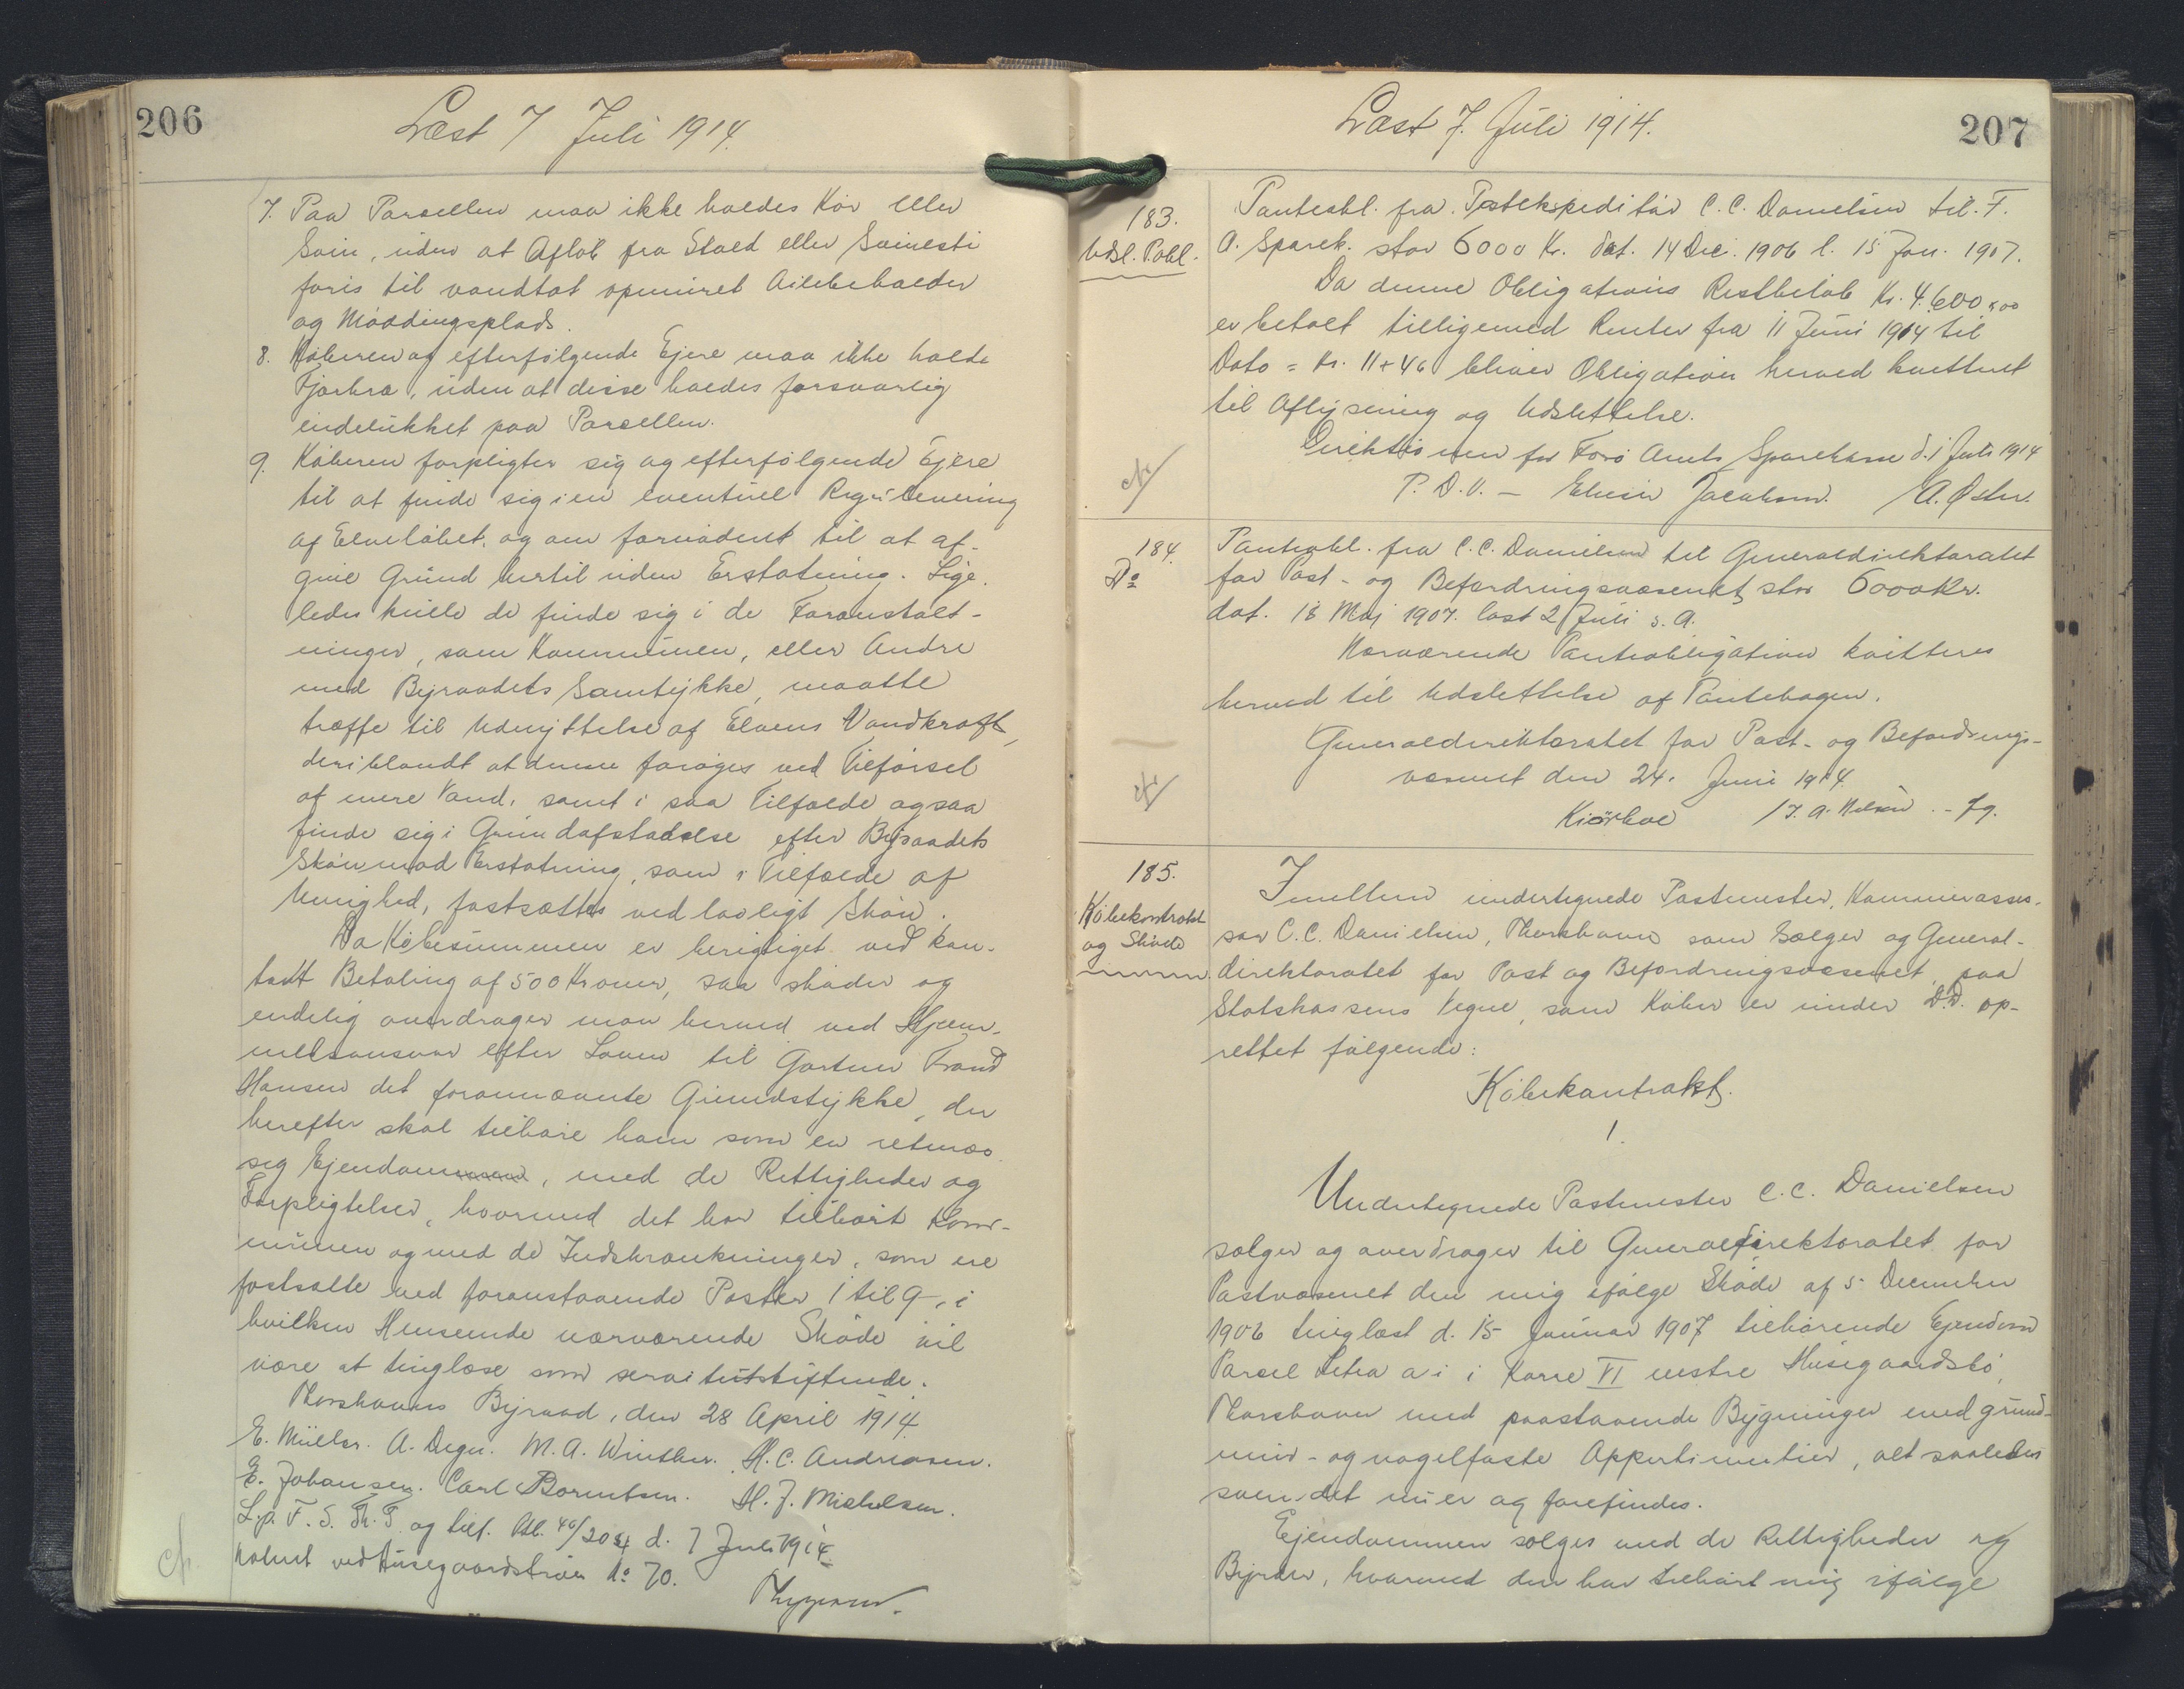 206
Læst 7 Juli 1914.
7. Paa Parcellen maa ikke holdes Kør eller
Svin, uden at Afløb fra Stald eller Svinesti
føres til vandtæt opmuret Ailebeholder
og Møddingsplads.
8. Køberen og efterfølgende Ejere maa ikke holde
Fjerkræ, uden at disse holdes forsvarlig
indelukket paa Parcellen.
9. Køberen forpligter sig og efterfølgende Ejere
til at finde sig i en eventuel Regulering
af Elveløbet, og om fornødent til at af-
give Grund hertil uden Erstatning. Lige-
ledes skulle de finde sig i de Foranstalt-
ninger, som Kommunen, eller Andre
med Byraadets Samtykke, maatte
træffe til Udnyttelse af Elvens Vandkraft,
deriblandt at denne forøges ved Tilførsel
af mere Vand, samt i saa Tilfælde ogsaa
finde sig i Grundafstaaelse efter Byraadets
Skøn mod Erstatning, som i Tilfælde af
Uenighed, fastsættes ved lovligt Skøn.
Da Købesummen er berigtiget ved kon-
tant Betaling af 500 Kroner, saa skøder og
endelig overdrager man herved ved Hjem-
melsansvar efter Loven til Gartner Frans
Hansen det forannævnte Grundstykke, der
herefter skal tilhøre ham som en retmæs
sig Ejendom, med de Rettigheder og
Forpligtelser, hvormed det har tilhørt Kom-
munen og med de Indskrænkninger, som ere
fastsatte ved foranstaaende Poster 1 til 9, i
hvilken Henseende nærværende Skøde vil
være at tinglæse som servitutstiftende.
Thorshavns Byraad, den 28 April 1914
E. Müller. A. Degn. M. A. Winther. H. C. Andreasen.
E. Johansen. Carl Borentsen. M. J. Michelsen.
L. p. F. S. Th. T. og tilf. Ptl. 40/204 d. 7 Juli 1914
Noteret ved Husegaardstrøen No 70.
cfr.
207
Læst 7. Juli 1914.
183.
Udsl. Pobl.
Panteobl. fra Postekspeditør C. C. Danielsen til F.
A. Sparek. stor 6000 Kr. dat. 14 Dec. 1906 l. 15 Jan. 1907.
Da denne Obligations Restbeløb Kr. 4.600,00
er betalt tilligemed Renter fra 11 Juni 1914 til
Dato = Kr. 11+46 bliver Obligationen herved kvitteret
til Aflysning og Udslettelse.
Direktionen for Færø Amts Sparekasse d. 1 Juli 1914
P. D. V. – Jacobsen. / A. Øster.
cfr
184.
Do
Panteobl. fra C. C. Danielsen til Generaldirektoratet
for Post- og Befordringsvæsenet, stor 6000 Kr.
dat. 18 Maj 1907. læst 2 Juli s. A.
Nærværende Panteobligation kvitteres
herved til Udslettelse af Pantebogen.
Generaldirektoratet for Post- og Befordrings-
væsenet den 24. Juni 1914.
Kiørboe / J. A. Nielsen. - fg.
cfr
185.
Købekontrakt
og Skøde
Imellem undertegnede Postmester, Kammerasses-
sor C. C. Danielsen, Thorshavn som Sælger og General-
direktoratet for Post og Befordringsvæsenet, paa
Statskassens Vegne, som Køber er under D.D. op-
rettet følgende:
Købekontrakt.
1.
Undertegnede Postmester C. C. Danielsen
sælger og overdrager til Generaldirektoratet for
Postvæsenet den mig ifølge Skøde af 5 December
1906 tinglæst d. 15 Januar 1907 tilhørende Ejendom
Parcel Litra a i i Karre VI vestre Husegaardsbø,
Thorshavn med paastaaende Bygninger med grund-
mur- og nagelfaste Appertinentier, alt saaledes
som det nu er og forefindes.
Ejendommen sælges med de Rettigheder og
Byrder, hvormed den har tilhørt mig ifølge